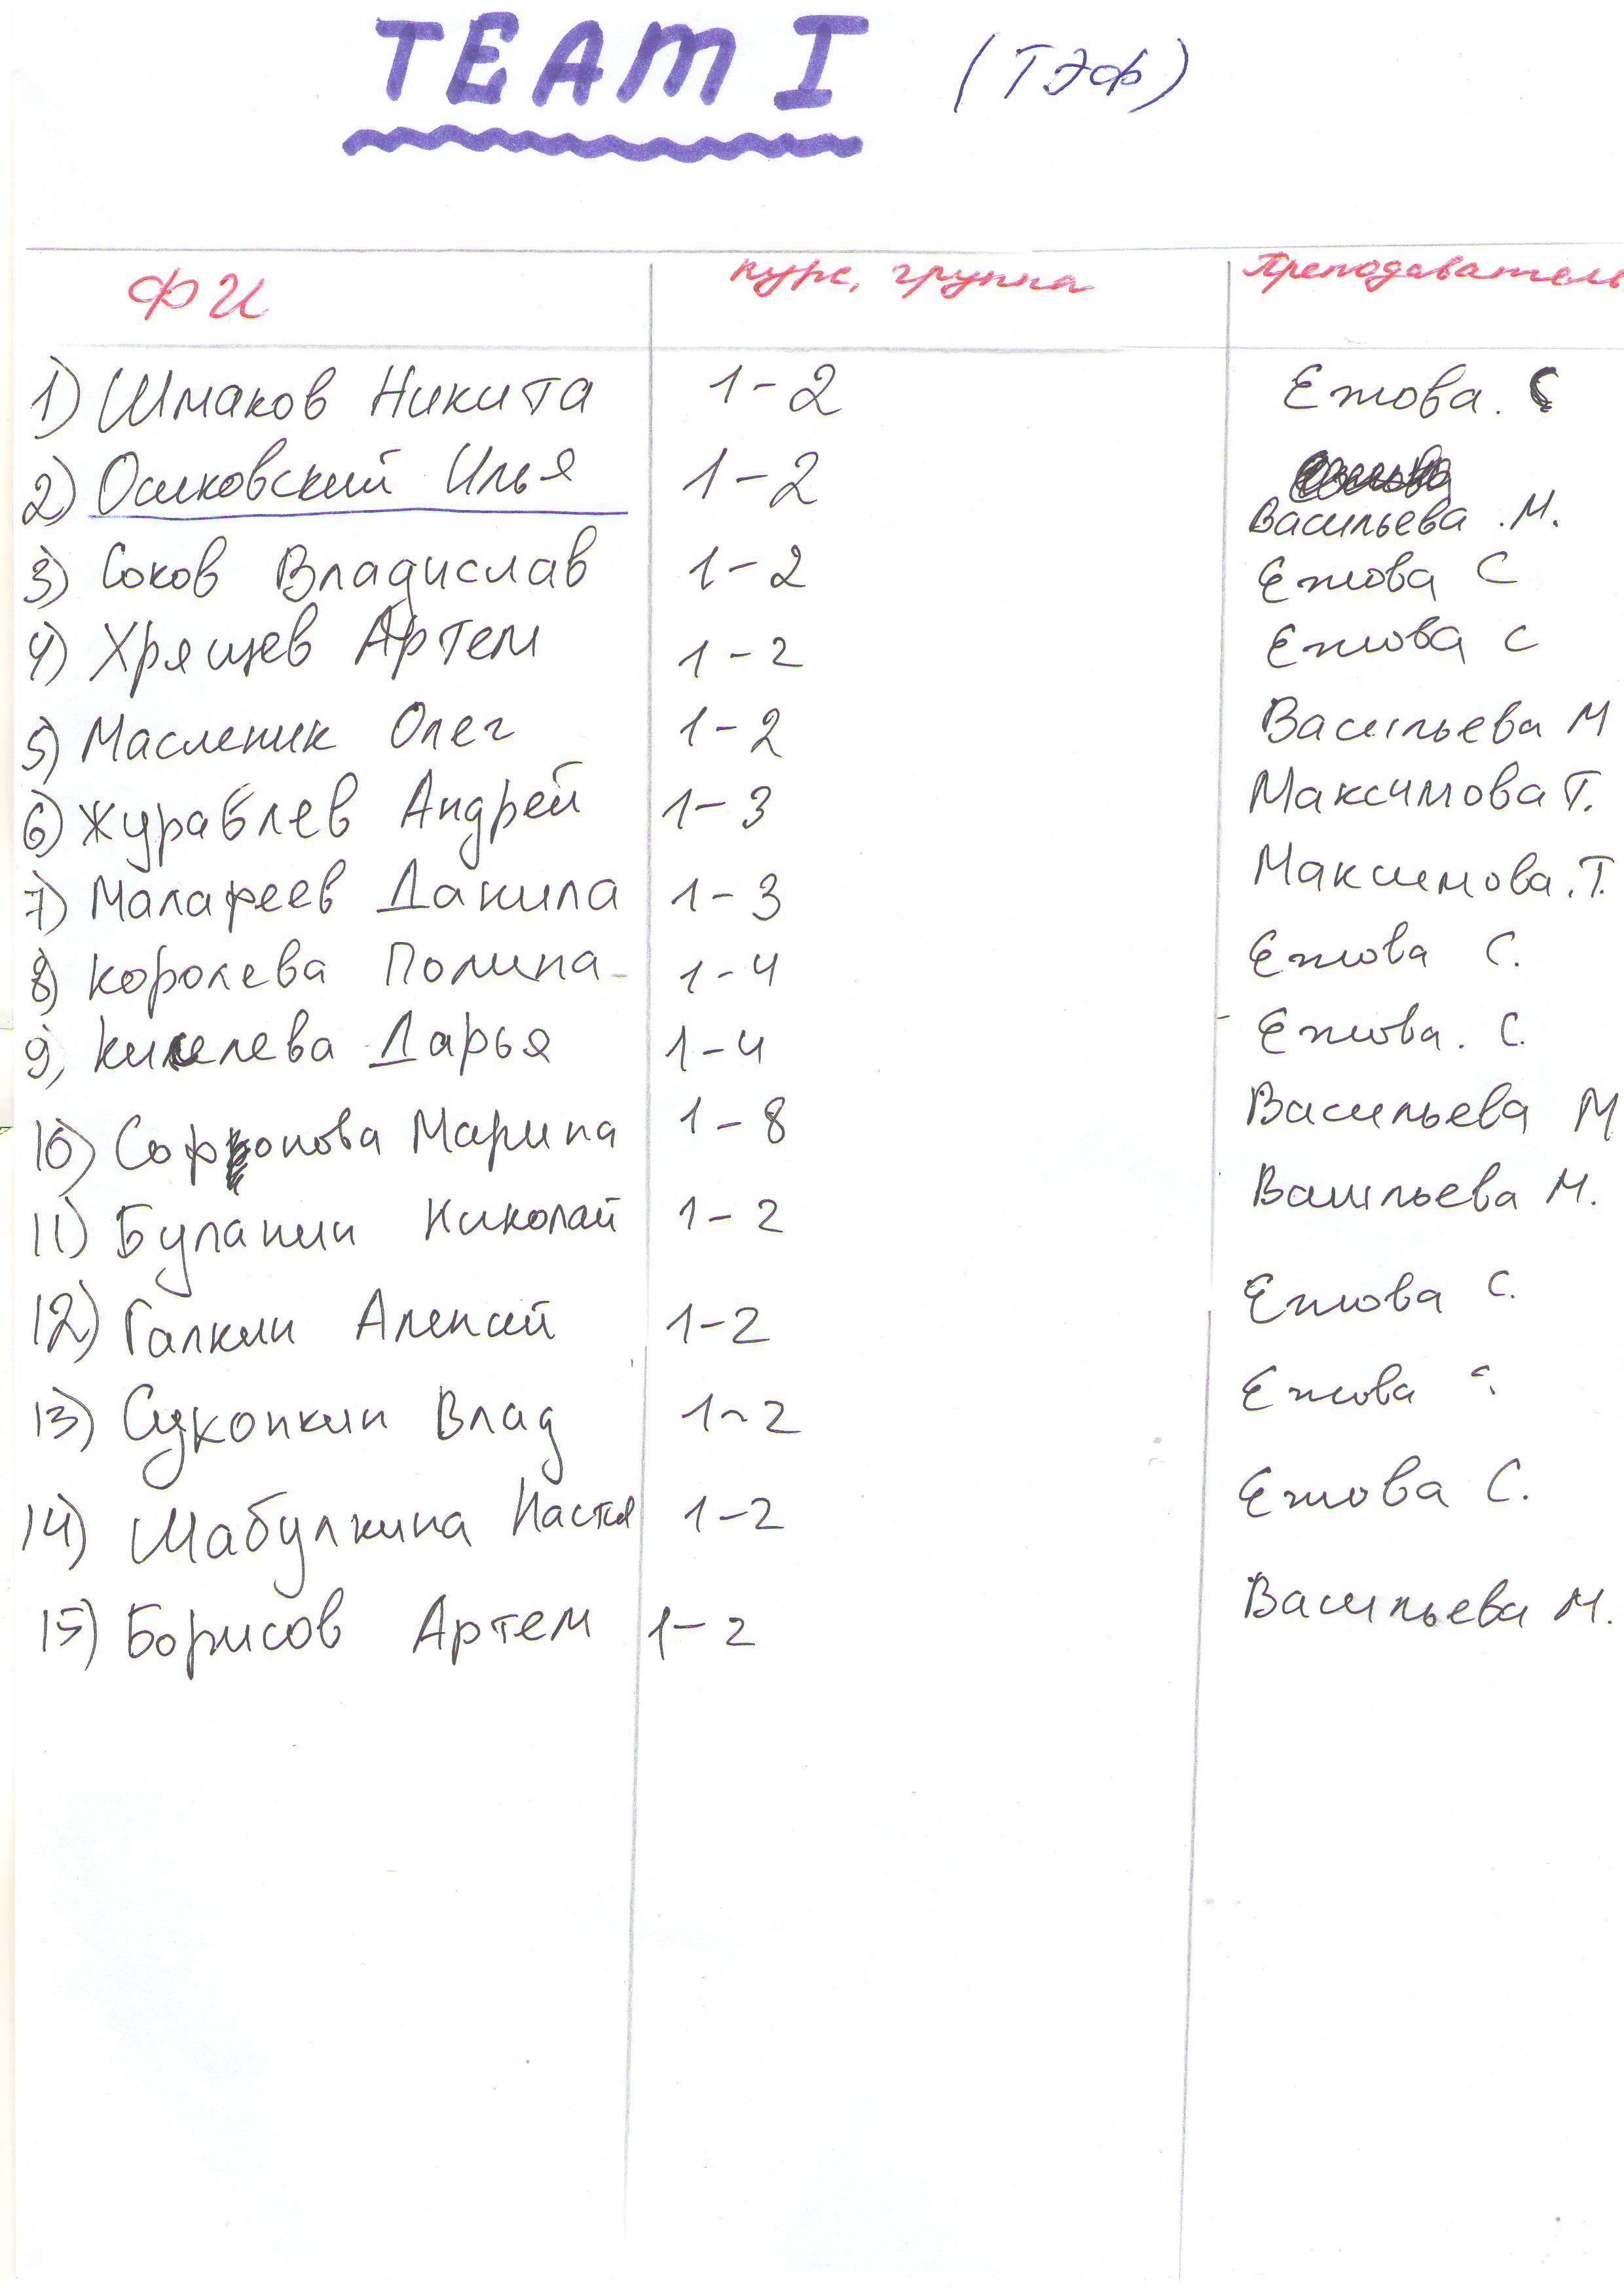 TEAM I (ТЭФ)
ФИ курс, группа Преподаватель
1) Шмаков Никита 1-2 Ежова. С
2) Осиковский Илья 1-2 Васильева .М.
3) Соков Владислав 1-2 Ежова С
4) Хрящев Артем 1-2 Ежова С
5) Масленик Олег 1-2 Васильева М
6) Журавлев Андрей 1-3 Максимова Т.
7) Малафеев Данила 1-3 Максимова.Т.
8) Королева Полина 1-4 Ежова С.
9) Киселева Дарья 1-4 Ежова. С.
10) Софронова Марина 1-8 Васильева М
11) Буланин Николай 1-2 Васильева М.
12) Галкин Алексей 1-2 Ежова С.
13) Суконкин Влад 1-2 Ежова С.
14) Шабулкина Настя 1-2 Ежова С.
15) Борисов Артем 1-2 Васильева М.